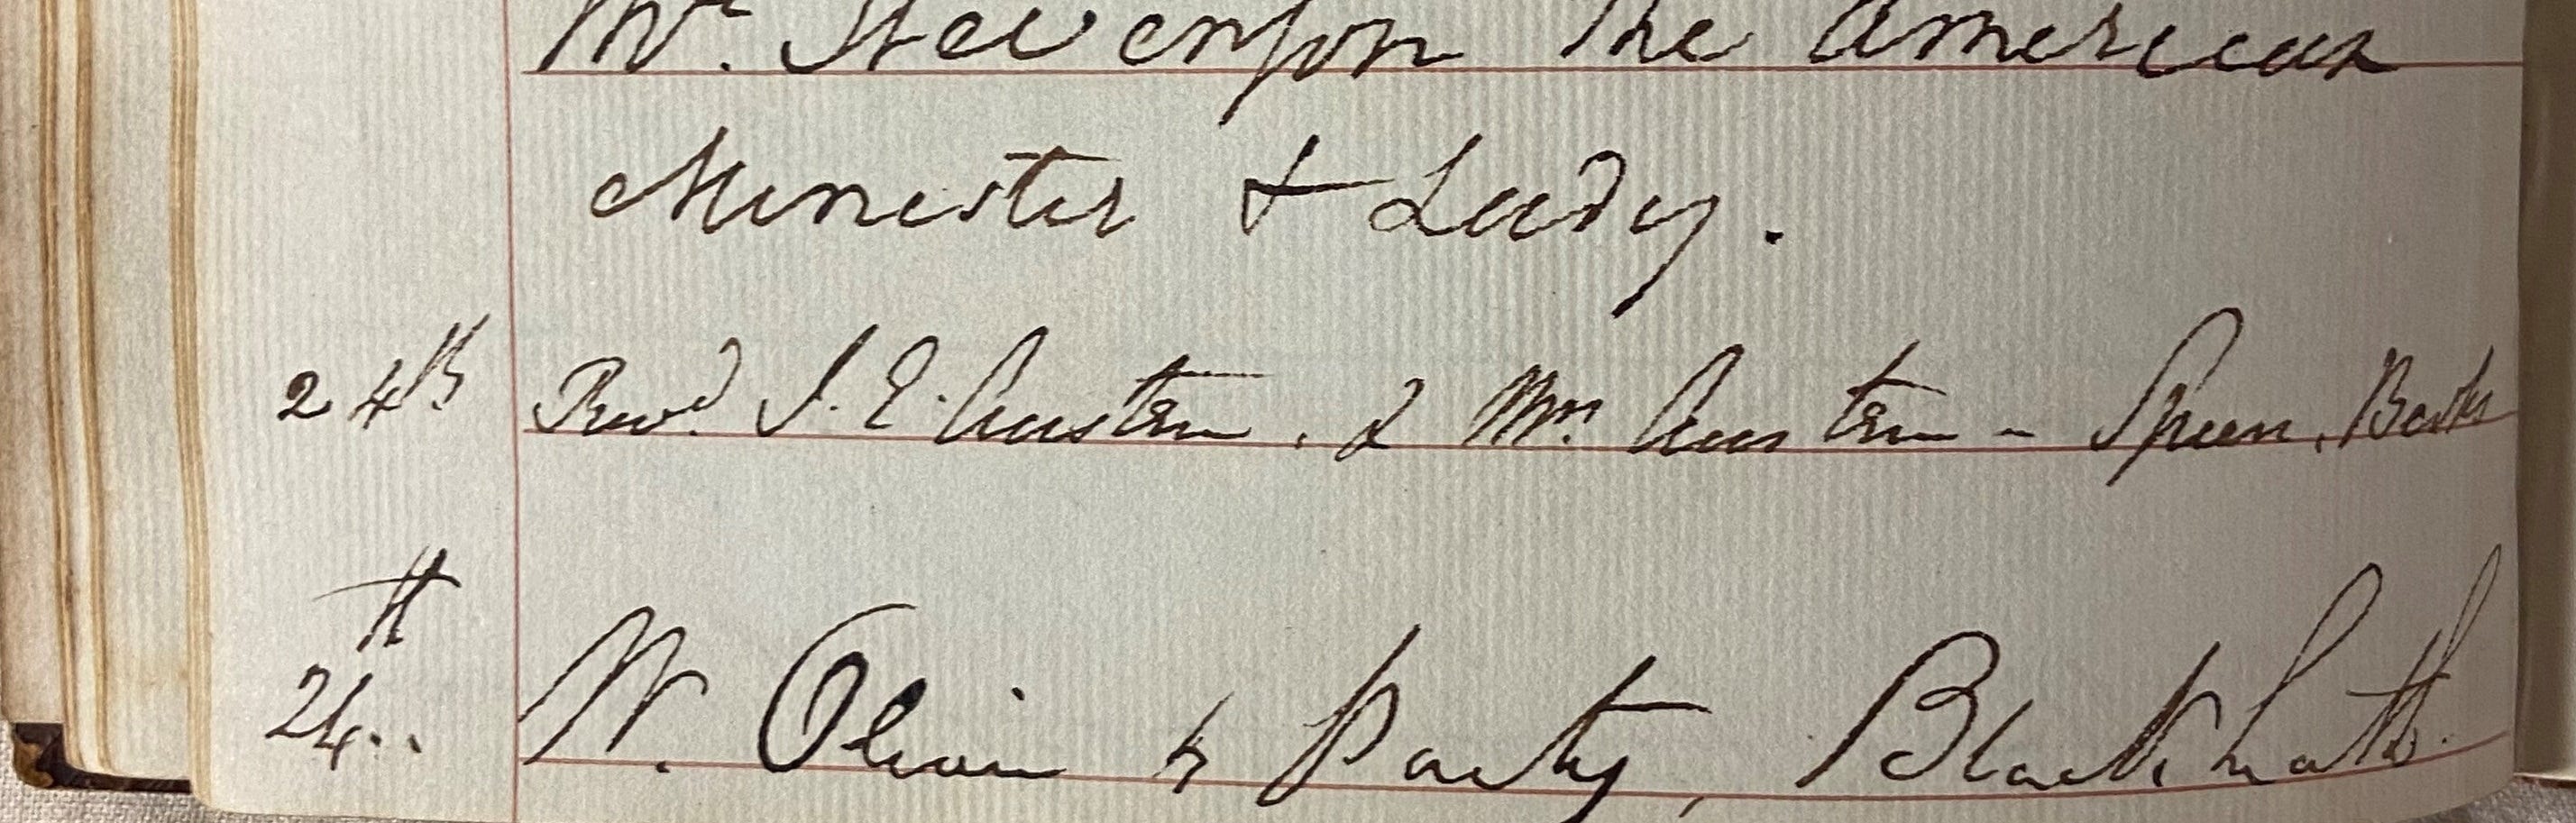 Mr. Stevenson The American
Minister & Lady.
24th Revd. J. E. Austen, & Mrs. Austen - Speen, Berks
24th.. W. Olivier & Party, Blackheath.